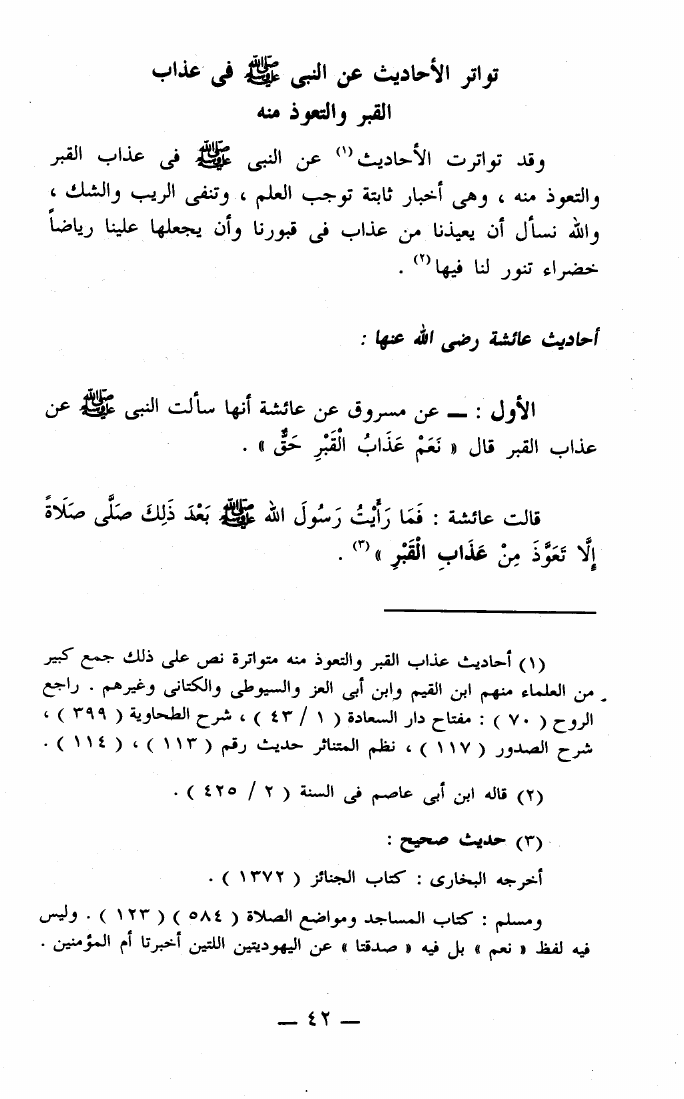 تواتر الأحاديث عن النبى ﷺ فى عذاب
القبر والتعوذ منه
وقد تواترت الأحاديث(١) عن النبى ﷺ فى عذاب القبر
والتعوذ منه ، وهى أخبار ثابتة توجب العلم ، وتنفى الريب والشك ،
والله نسأل أن يعيذنا من عذاب فى قبورنا وأن يجعلها علينا رياضاً
خضراء تنور لنا فيها(٢) .
أحاديث عائشة رضى الله عنها :
الأول : ــ عن مسروق عن عائشة أنها سألت النبى ﷺ عن
عذاب القبر قال « نَعَمْ عَذَابُ الْقَبْرِ حَقٌّ » .
قالت عائشة : فَمَا رَأَيْتُ رَسُولَ الله ﷺ بَعْدَ ذَلِكَ صَلَّى صَلَاةً
إِلَّا تَعَوَّذَ مِنْ عَذَابِ الْقَبْرِ »(٣) .
(١) أحاديث عذاب القبر والتعوذ منه متواترة نص على ذلك جمع كبير
من العلماء منهم ابن القيم وابن أبى العز والسيوطى والكتانى وغيرهم . راجع
الروح ( ٧٠ ) : مفتاح دار السعادة ( ١ / ٤٣ ) ، شرح الطحاوية ( ٣٩٩ ) ،
شرح الصدور ( ١١٧ ) ، نظم المتناثر حديث رقم ( ١١٣ ) ، ( ١١٤ ) .
(٢) قاله ابن أبى عاصم فى السنة ( ٢ / ٤٢٥ ) .
(٣) حديث صحيح :
أخرجه البخارى : كتاب الجنائز ( ١٣٧٢ ) .
ومسلم : كتاب المساجد ومواضع الصلاة ( ٥٨٤ ) ( ١٢٣ ) . وليس
فيه لفظ « نعم » بل فيه « صدقتا » عن اليهوديتين اللتين أخبرتا أم المؤمنين .
— ٤٢ —